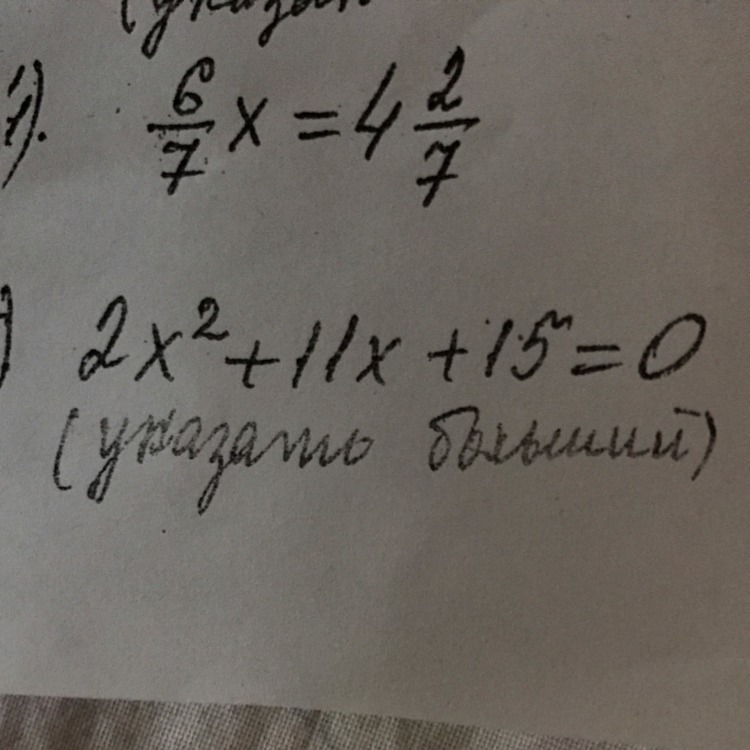 (указат
1). 6/7 x = 4 2/7
) 2x² + 11x + 15 = 0
(указать больший)